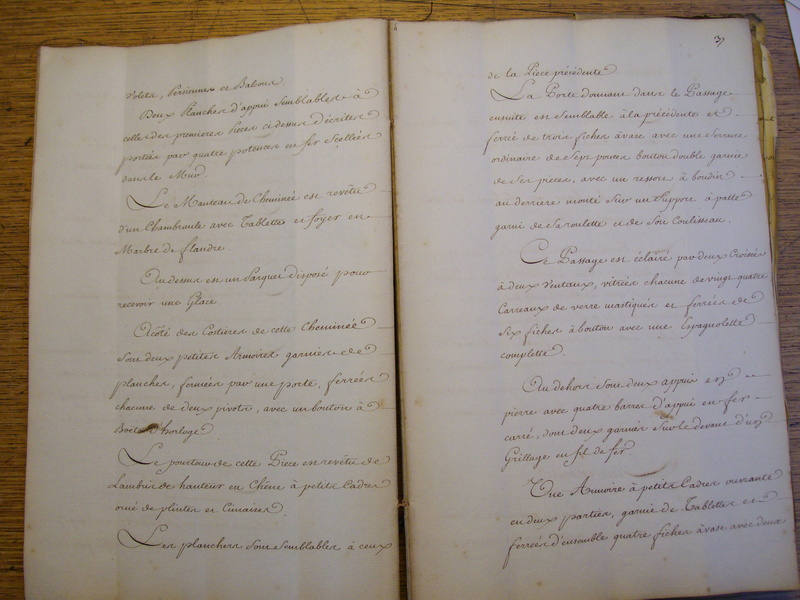 volets, Persiennes et Balcons
Deux Planches d'appui Semblables à
celles des premieres Pieces ci dessus décrites
portées par quatre potences en fer Scellées
dans le Mur.
Le Manteau de Cheminée est revêtu
d'un Chambranle avec Tablette et foyer en
Marbre de flandre
Au dessus est un Parquet disposé pour
recevoir une Glace.
A côté des Costieres de cette Cheminée
Sont deux petites Armoires garnies de
planches, fermées par une porte, ferrées
chacune de deux pivots, avec un bouton à
Boete d'horloge
Le pourtour de cette Piece est revêtu de
Lambris de hauteur en Chêne à petits Cadres
orné de plintes et Cimaises.
Les planchers Sont Semblables à ceux
3
de la Piece précédente
La Porte donnant dans le Passage
ensuite est Semblable à la précédente et
ferrée de trois fiches à vase avec une Serrure
ordinaire de Sept pouces bouton double garnie
de Ses pieces, avec un ressort à boudin
au derriere monté Sur un Support à patte
garni de Sa roulette et de Son Coulisseau.
Ce Passage est éclairé par deux Croisées
à deux Venteaux, vitrées chacune de vingt quatre
Carreaux de verre mastiqués et ferrées de
Six fiches à bouton avec une Espagnolette
complette.
Au dehors Sont deux appuis en
pierre avec quatre barres d'appui en fer
carré, dont deux garnies Sur le devant d'un
Grillage en fil de fer.
Une Armoire à petits Cadres ouvrante
en deux parties, garnie de Tablettes et
ferrées d'ensemble quatre fiches à vase avec deux